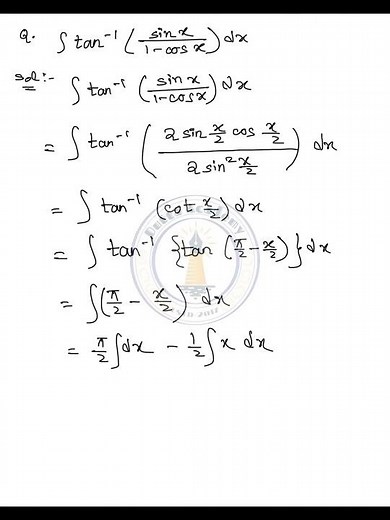 Q. ∫ tan⁻¹ (sin x / 1-cos x) dx
Sol:- ∫ tan⁻¹ (sin x / 1-cos x) dx
= ∫ tan⁻¹ (2 sin x/2 cos x/2 / 2 sin² x/2) dx
= ∫ tan⁻¹ (cot x/2) dx
= ∫ tan⁻¹ {tan (π/2 - x/2)} dx
= ∫ (π/2 - x/2) dx
= π/2 ∫ dx - 1/2 ∫ x dx